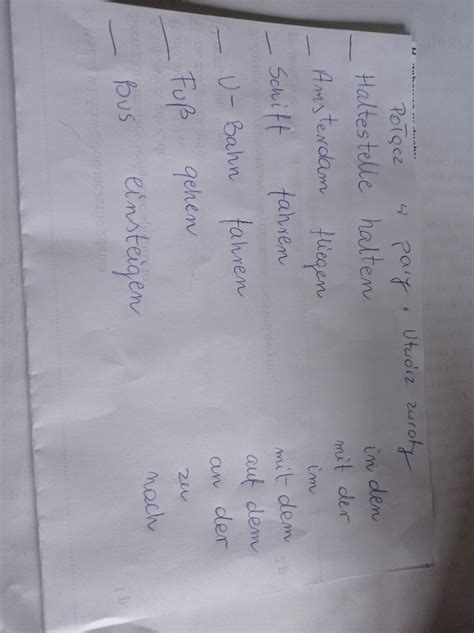 Połącz w pary. Utwórz zwroty
— Haltestelle halten
— Amsterdam fliegen
— Schiff fahren
— U-Bahn fahren
— Fuß gehen
— Bus einsteigen
in den
mit der
im
mit dem
auf dem
an der
zu
nach